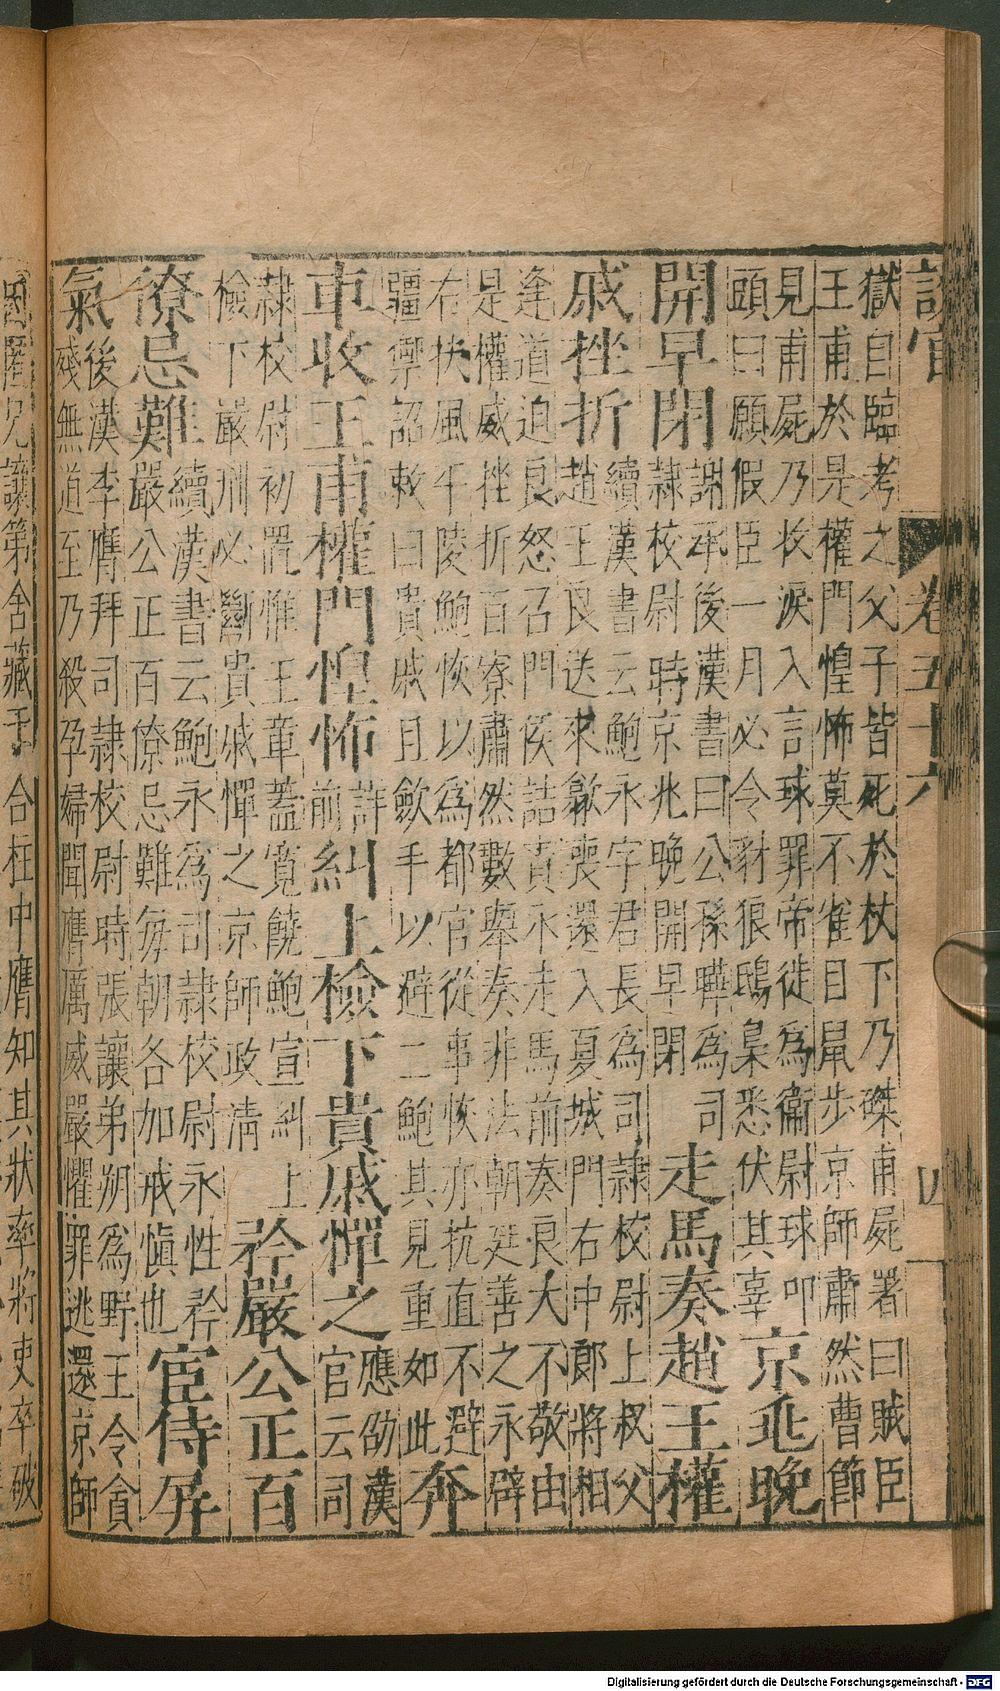 設官 卷五十六 四
獄自臨考之父子皆死於杖下乃磔甫屍署曰賊臣
王甫於是權門惶怖莫不雀目鼠步京師肅然曹節
見甫屍乃收淚入言球罪帝徙為衛尉球叩
頭曰願假臣一月必令豺狼鴟梟悉伏其辜
京兆晚
開早閉
謝承後漢書曰公孫曄為司
隸校尉時京兆晚開早閉
走馬奏趙王權
戚挫折
續漢書云鮑永字君長為司隸校尉上叔父
趙王良送來歙喪還入夏城門右中郎將相
逢道迫良怒召門侯詰責永走馬前奏良大不敬由
是權威挫折百寮肅然數舉奏非法朝廷善之永辟
右扶風午陵鮑恢以為都官從事恢亦抗直不避
彊禦詔敕曰貴戚且歛手以避二鮑其見重如此
奔
車收王甫權門惶怖
詳
前
糾上檢下貴戚憚之
應劭漢
官云司
隸校尉初置惟王章蓋寬饒鮑宣糾上
檢下嚴刑必斷貴戚憚之京師政清
矜嚴公正百
僚忌難
續漢書云鮑永為司隸校尉永性矜
嚴公正百僚忌難每朝各加戒慎也
宦侍屏
氣
後漢李膺拜司隸校尉時張讓弟朔為野王令貪
殘無道至乃殺孕婦聞膺厲威嚴懼罪逃還京師
因匿兄讓第舍藏于合柱中膺知其狀率將吏卒破
Digitalisierung gefördert durch die Deutsche Forschungsgemeinschaft - DFG